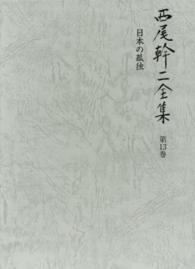 西尾幹二全集
第13巻
日本の孤独